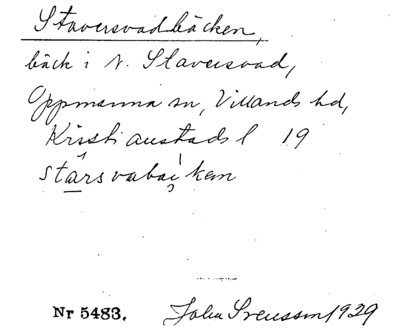 Staversvadbäcken,
bäck i N. Staversvad,
Oppmanna sn, Villands hd,
Kristianstads l 19
stársvabäkem
Nr 5483. John Svensson 1929